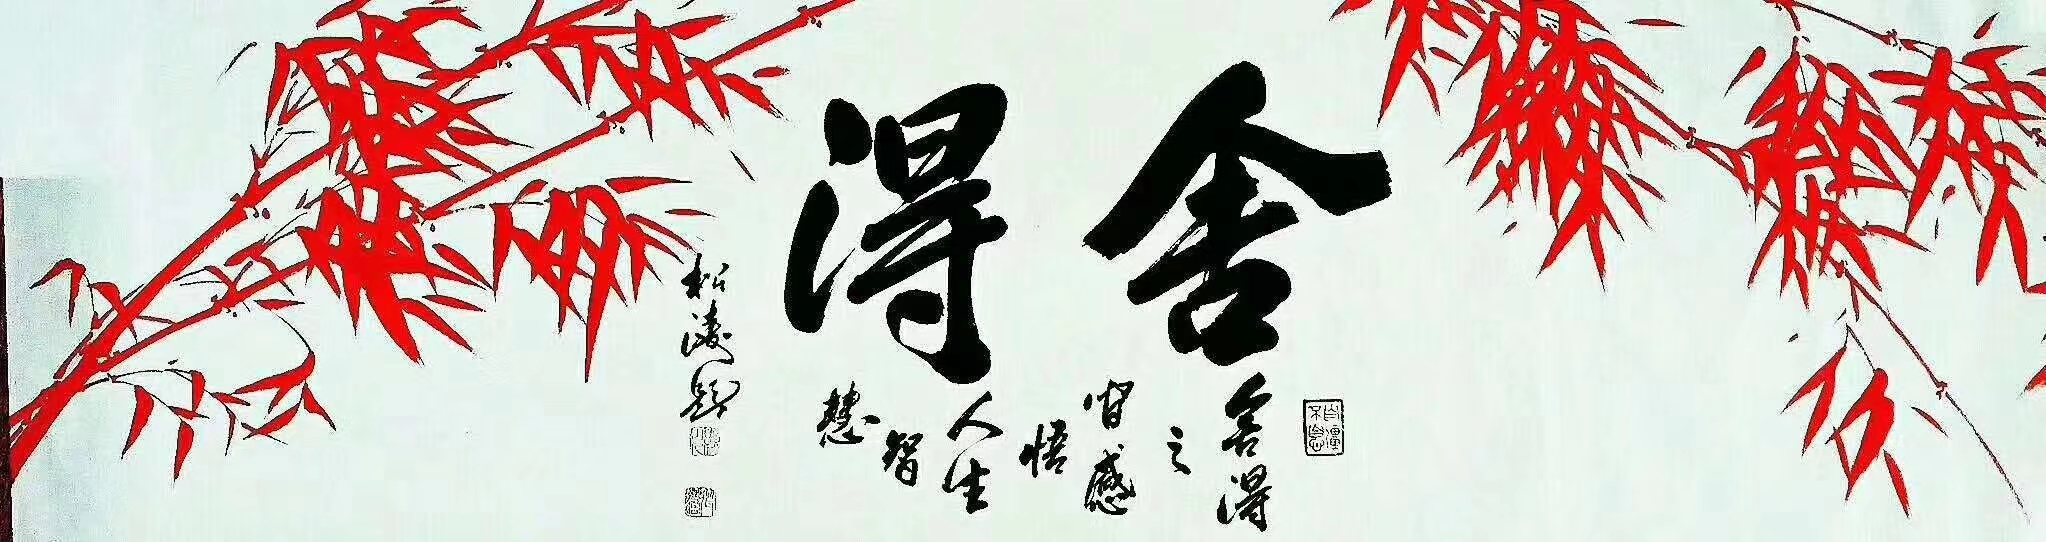 舍得
舍得
之
间感
悟
人生
智
慧
松涛题